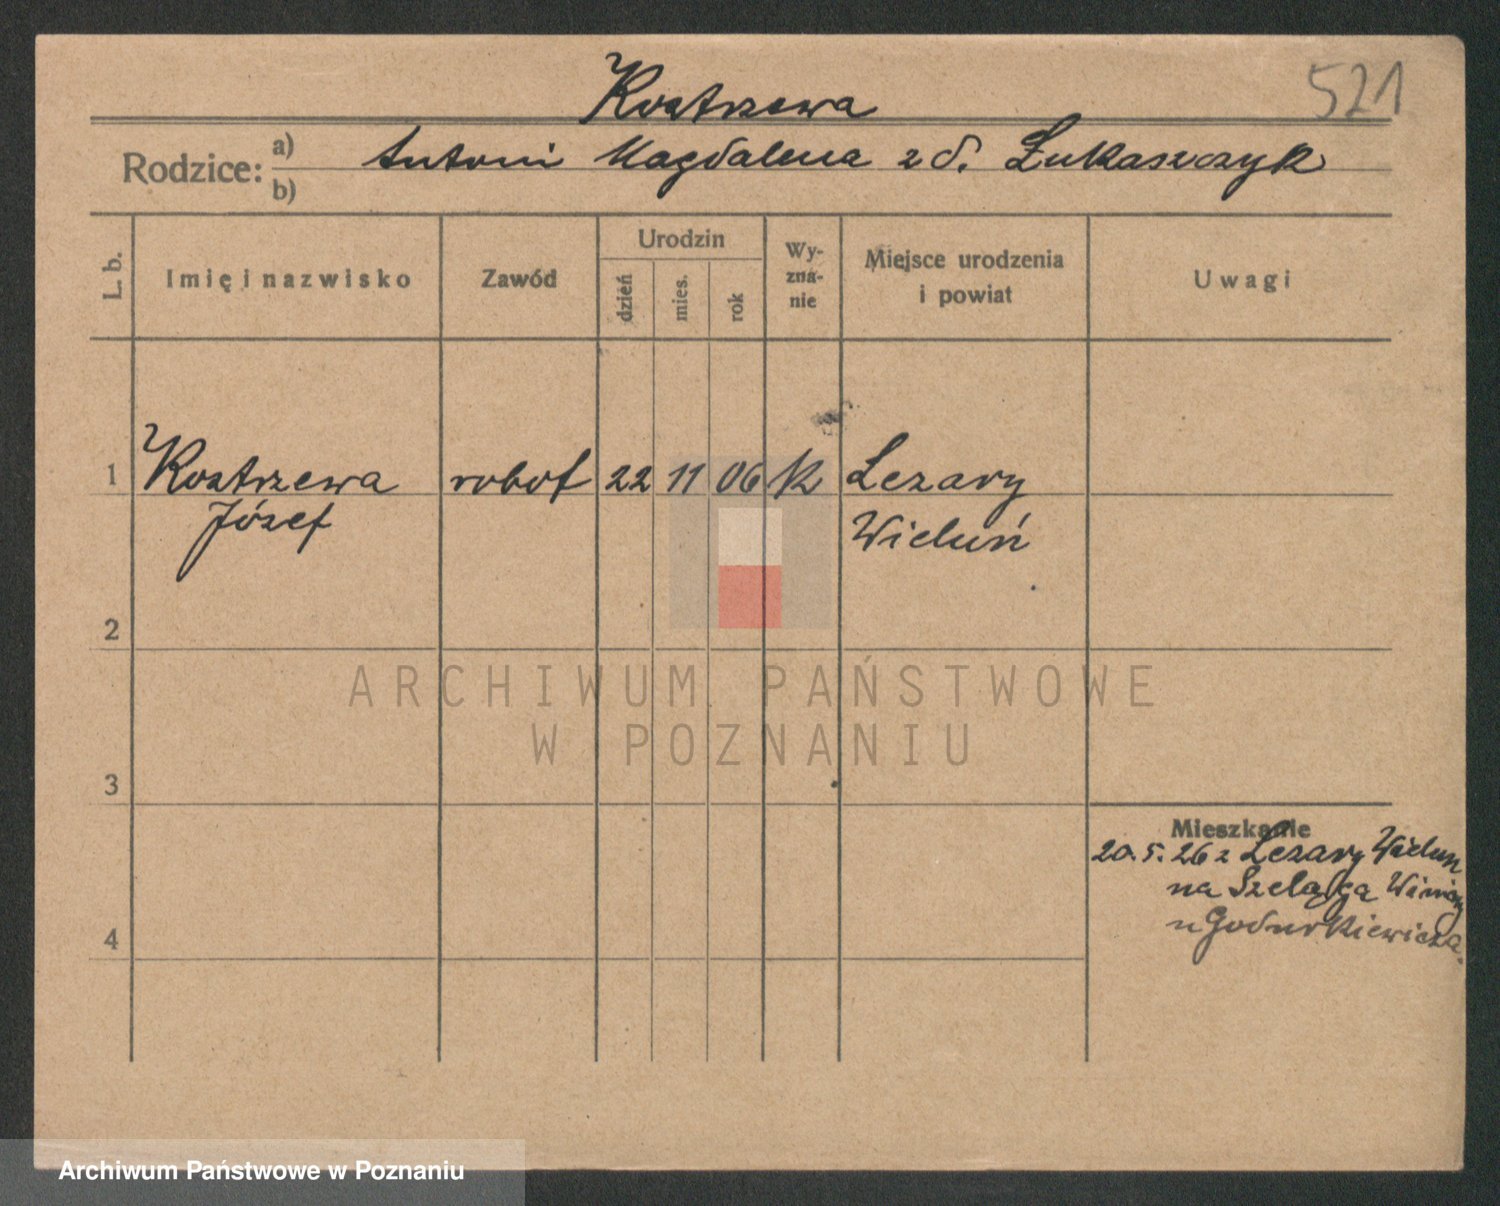 521
Kostrzewa
Rodzice: a) Antoni Magdalena z d. Łukaszczyk
b)
L. b. Imię i nazwisko Zawód Urodzin dzień mies. rok Wy-zna-nie Miejsce urodzenia i powiat Uwagi
1 Kostrzewa robot 22 11 06 k Lezary
Józef Wieluń
2
ARCHIWUM PAŃSTWOWE
W POZNANIU
3
Mieszkanie
20. 5. 26 z Lezary Wieluń
na Szeląga
u
4
Archiwum Państwowe w Poznaniu